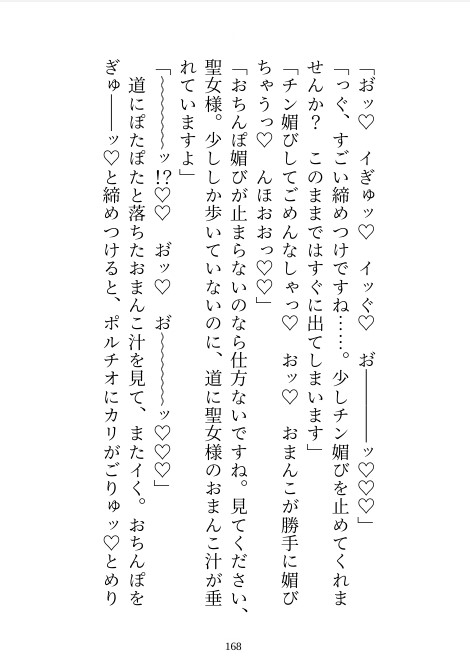 「お゛ッ♡　イぎゅッ♡　イッぐ♡　お゛――――ッ♡♡♡」
「っぐ、すごい締めつけですね……。少しチン媚びを止めてくれま
せんか？　このままではすぐに出てしまいます」
「チン媚びしてごめんなしゃっ♡　おッ♡　おまんこが勝手に媚び
ちゃうっ♡　んほおおっ♡♡」
「おちんぽ媚びが止まらないのなら仕方ないですね。見てください、
聖女様。少ししか歩いていないのに、道に聖女様のおまんこ汁が垂
れていますよ」
「～～～～～ッ!?♡♡　お゛ッ♡　お゛～～～～～ッ♡♡♡」
　道にぽたぽたと落ちたおまんこ汁を見て、またイく。おちんぽを
ぎゅ――ッ♡と締めつけると、ポルチオにカリがごりゅッ♡とめり
168